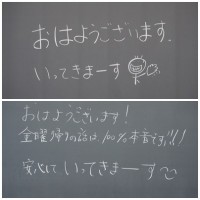 おはようございます.
いってきまーす
おはようございます!
金曜帰りの話は100%本音です!!!
安心していってきまーす